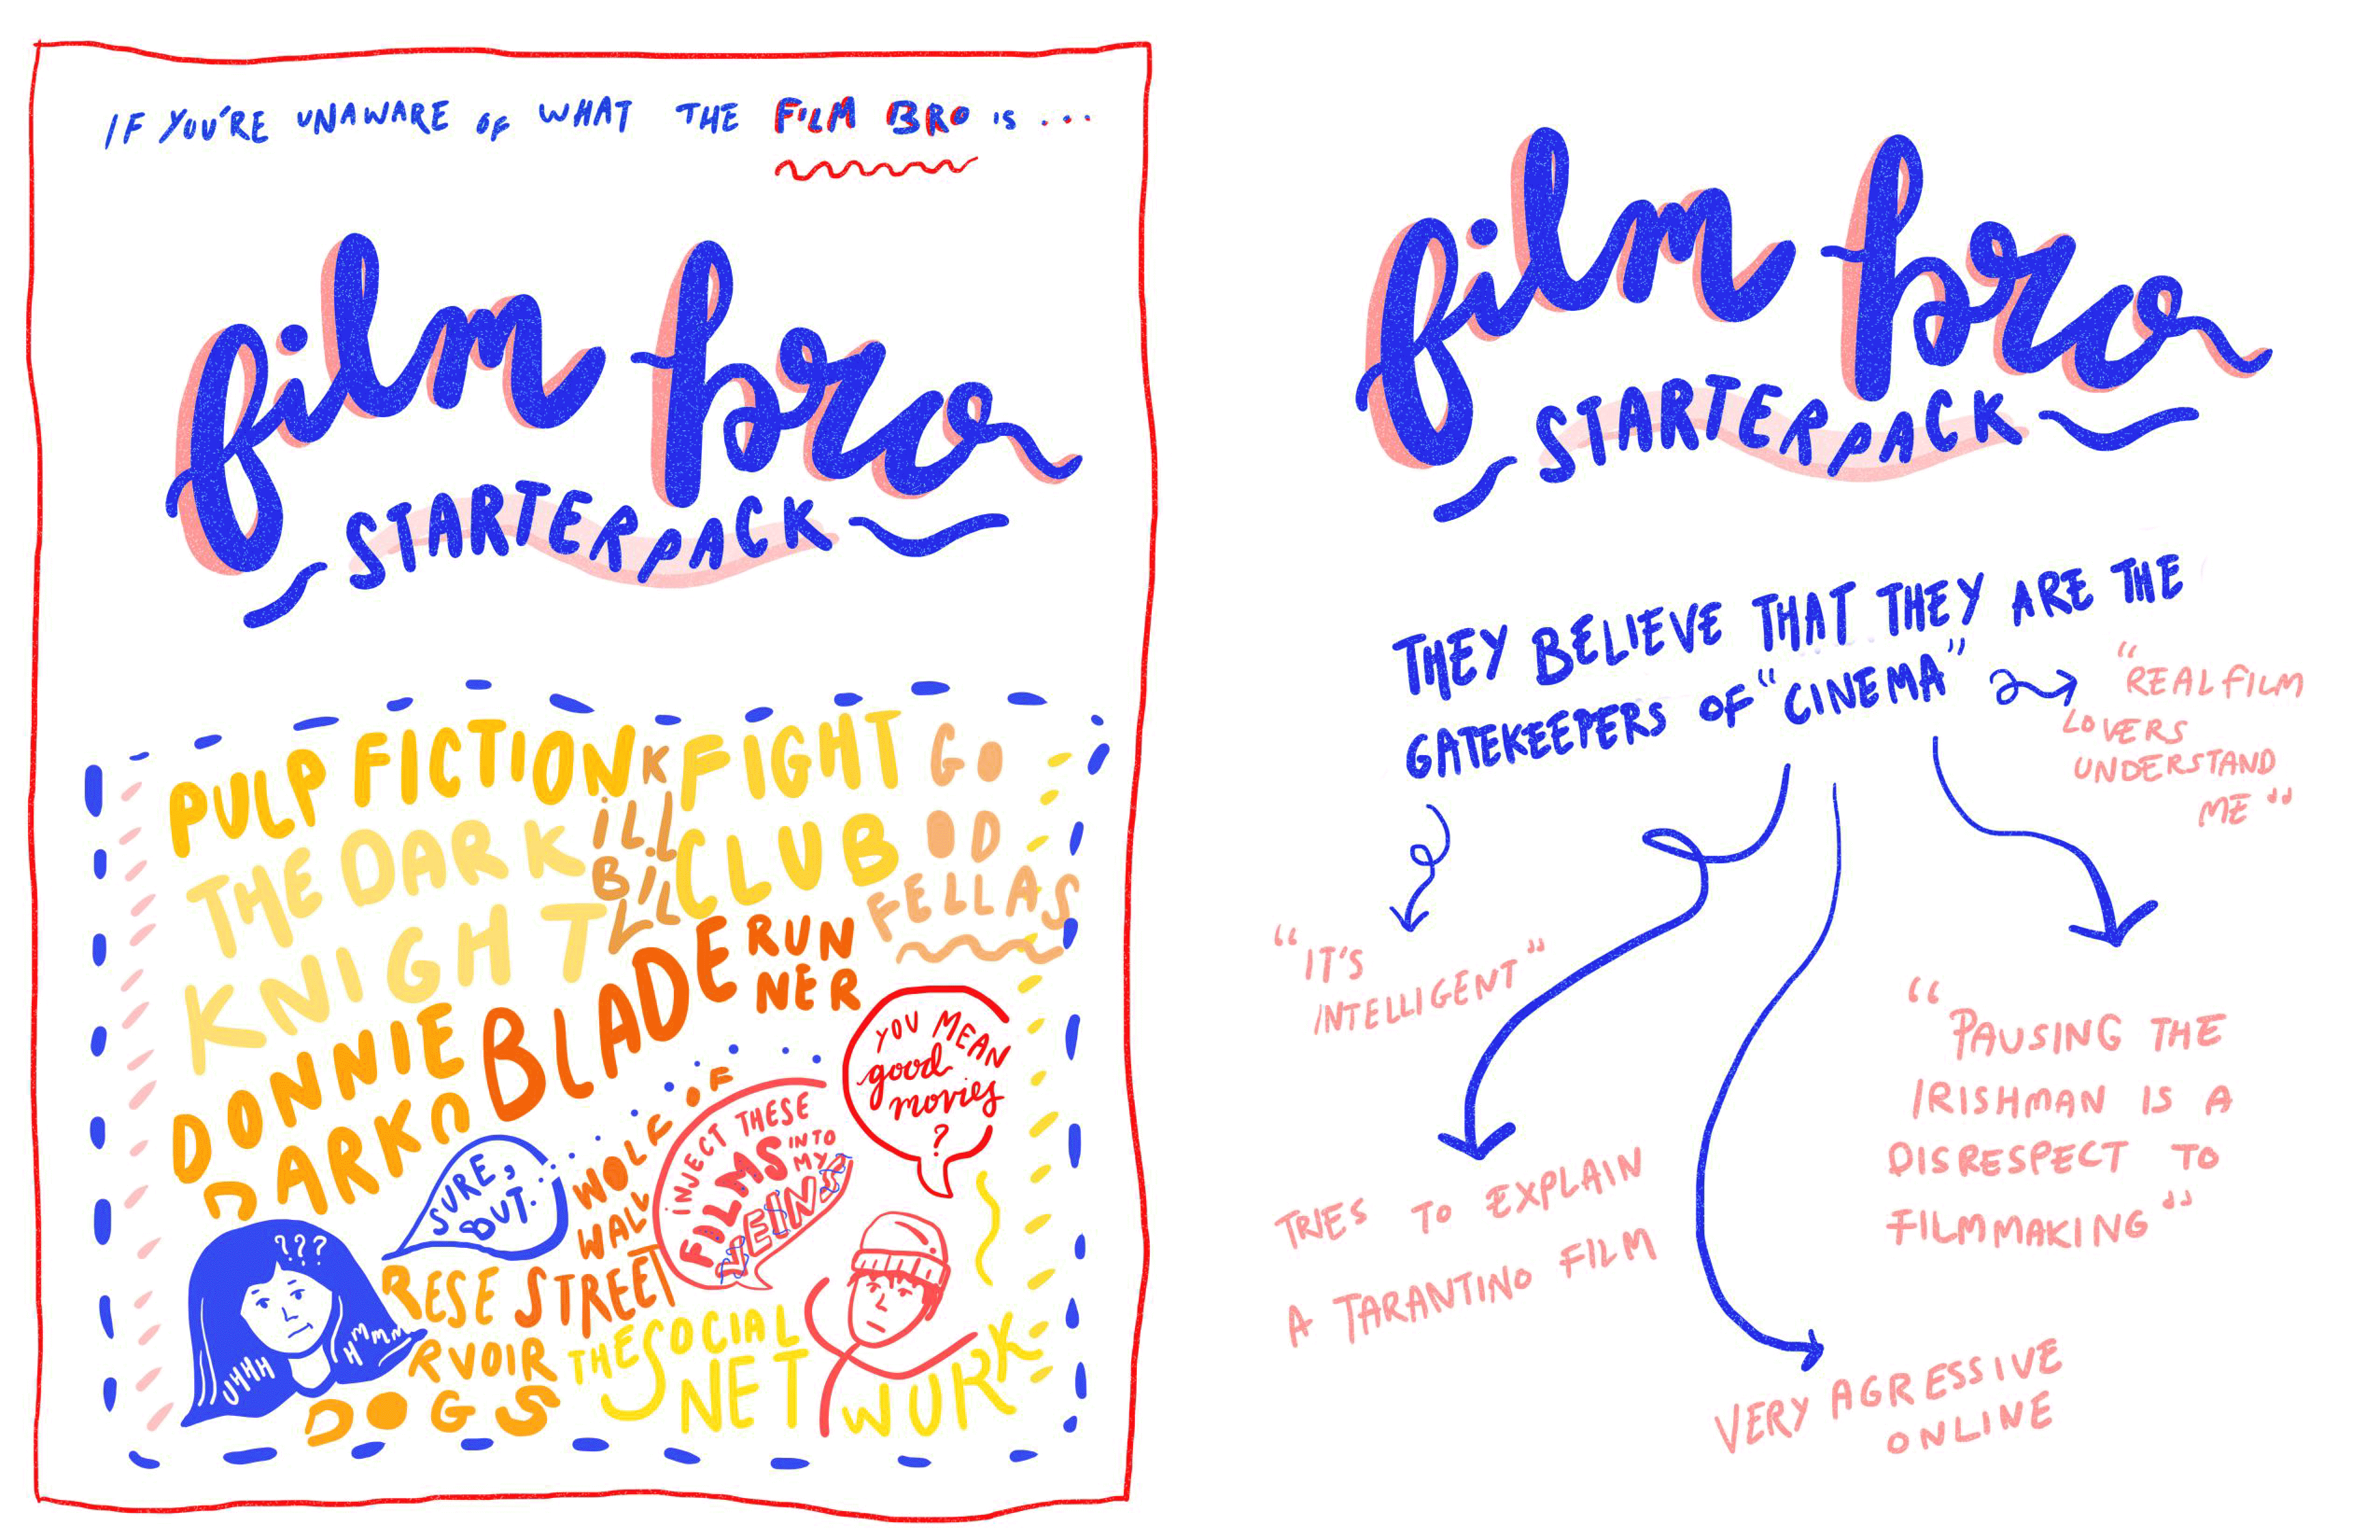 IF YOU'RE UNAWARE OF WHAT THE FILM BRO IS...
film bro
STARTERPACK
PULP FICTION
KILL
BILL
FIGHT
CLUB
GO
OD
FELLAS
THE DARK
KNIGHT
BLADE RUN
NER
DONNIE
DARKO
YOU MEAN
good
movies
?
SURE,
BUT.
WOLF OF
WALL
STREET
INJECT THESE
FILMS INTO
MY
VEINS
???
UHHH
HMMM
RESE
RVOIR
DOGS
THE SOCIAL
NET WURK
film bro
STARTERPACK
THEY BELIEVE THAT THEY ARE THE
GATEKEEPERS OF "CINEMA"
"REAL FILM
LOVERS
UNDERSTAND
ME"
"IT'S
INTELLIGENT"
TRIES TO EXPLAIN
A TARANTINO FILM
"PAUSING THE
IRISHMAN IS A
DISRESPECT TO
FILMMAKING"
VERY AGRESSIVE
ONLINE